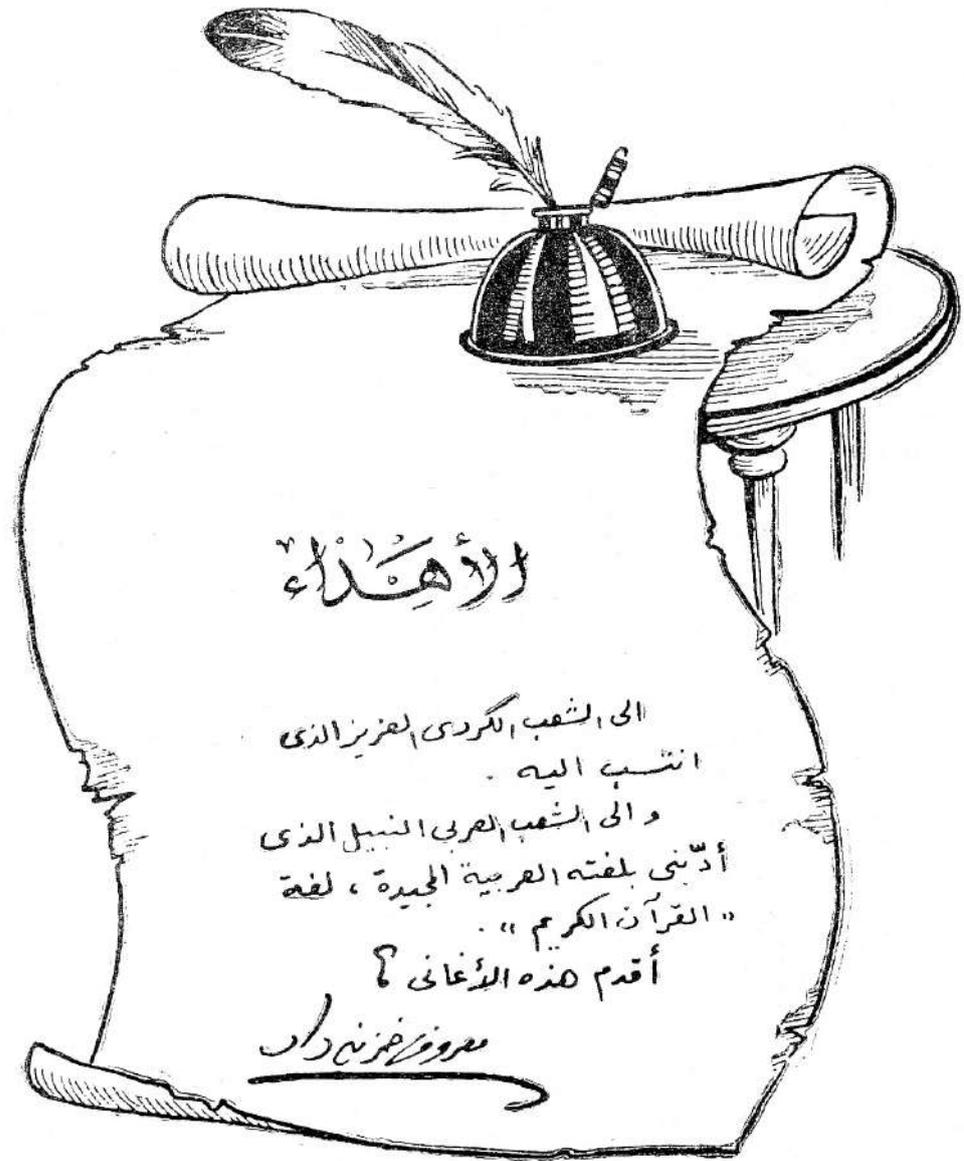 الأهداء
الى الشعب الكردى العزيز الذى
انتسب اليه .
و الى الشعب العربى النبيل الذى
أدّبنى بلغته العربية المجيدة ، لغة
« القرآن الكريم » .
أقدم هذه الأغانى ؟
معروف خزنه دار